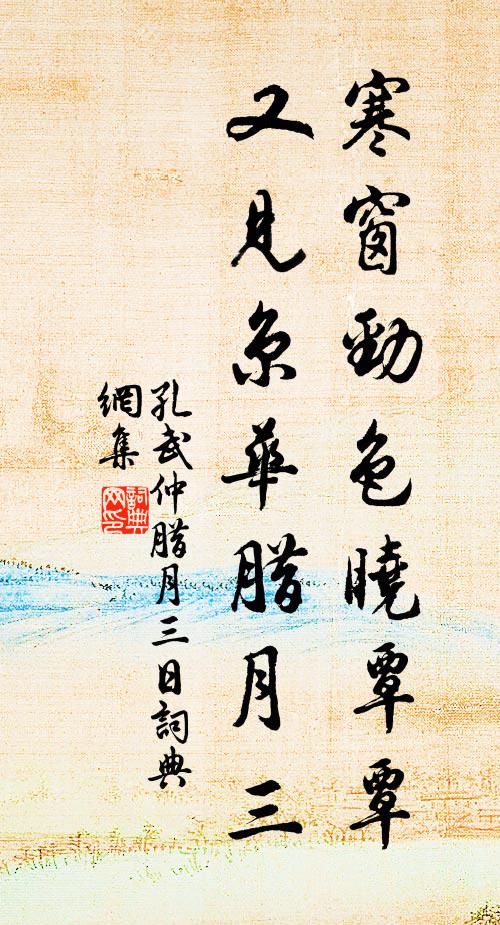 寒窗勁色曉覃覃
又見京華腊月三
孔武仲腊月三日詞典
網集
詞典
网印